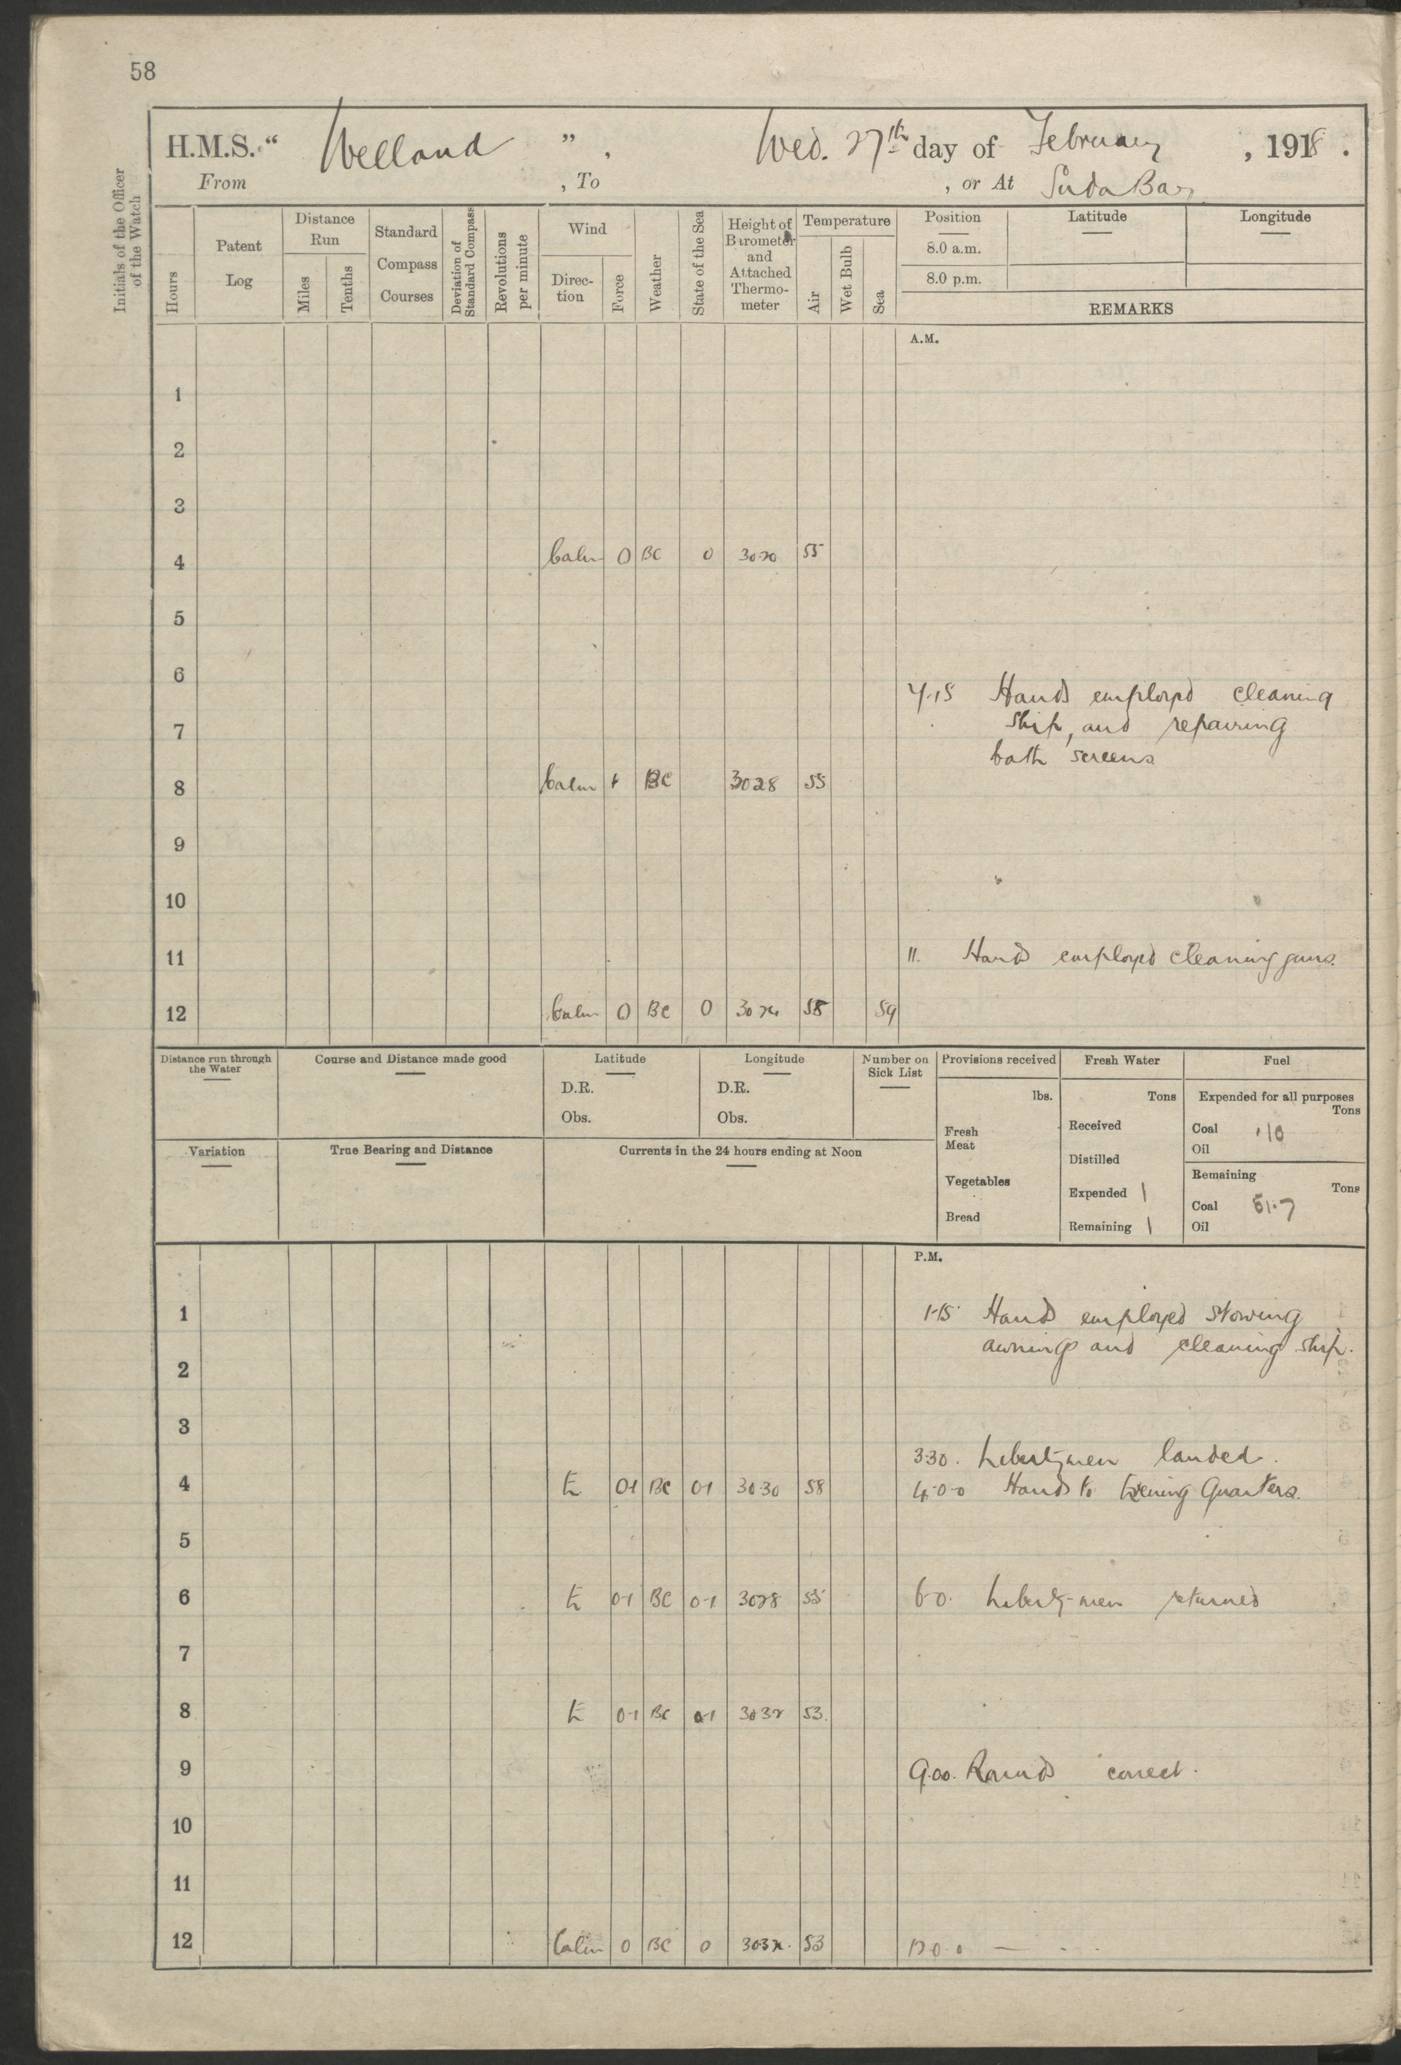 58
H.M.S. “ Welland ” , Wed. 27th day of February , 1918 .
From , To , or At Suda Bay
Initials of the Officer of the Watch
Hours
Patent Log
Distance Run
Miles
Tenths
Standard Compass Courses
Deviation of Standard Compass
Revolutions per minute
Wind
Direction
Force
Weather
State of the Sea
Height of Barometer and Attached Thermometer
Temperature
Air
Wet Bulb
Sea
Position Latitude Longitude
8.0 a.m.
8.0 p.m.
REMARKS
A.M.
1
2
3
4 Calm 0 BC 0 30.20 55
5
6
7.15 Hands employed cleaning
7 ship, and repairing
both screens
8 Calm BC 3028 55
9
10
11 11. Hands employed cleaning guns.
12 Calm 0 BC 0 58 59
Distance run through the Water
Course and Distance made good
Latitude
D.R.
Obs.
Longitude
D.R.
Obs.
Number on Sick List
Provisions received
lbs.
Fresh Meat
Vegetables
Bread
Fresh Water
Tons
Received
Distilled
Expended 1
Remaining 1
Fuel
Expended for all purposes
Tons
Coal .10
Oil
Remaining
Tons
Coal 51.7
Oil
Variation
True Bearing and Distance
Currents in the 24 hours ending at Noon
P.M.
1 1-15 Hands employed stowing
awnings and cleaning ship.
2
3
3.30. Libertymen landed.
4 E 0-1 BC 0-1 30.30 58 4.0-0 Hands to Evening Quarters.
5
6 E 0-1 BC 0-1 3028 55 6-0. Liberty-men returned
7
8 E 0-1 BC 0-1 3032 53
9 9.00. Rounds correct.
10
11
12 Calm 0 BC 0 3032. 53 12.0.0 — - -